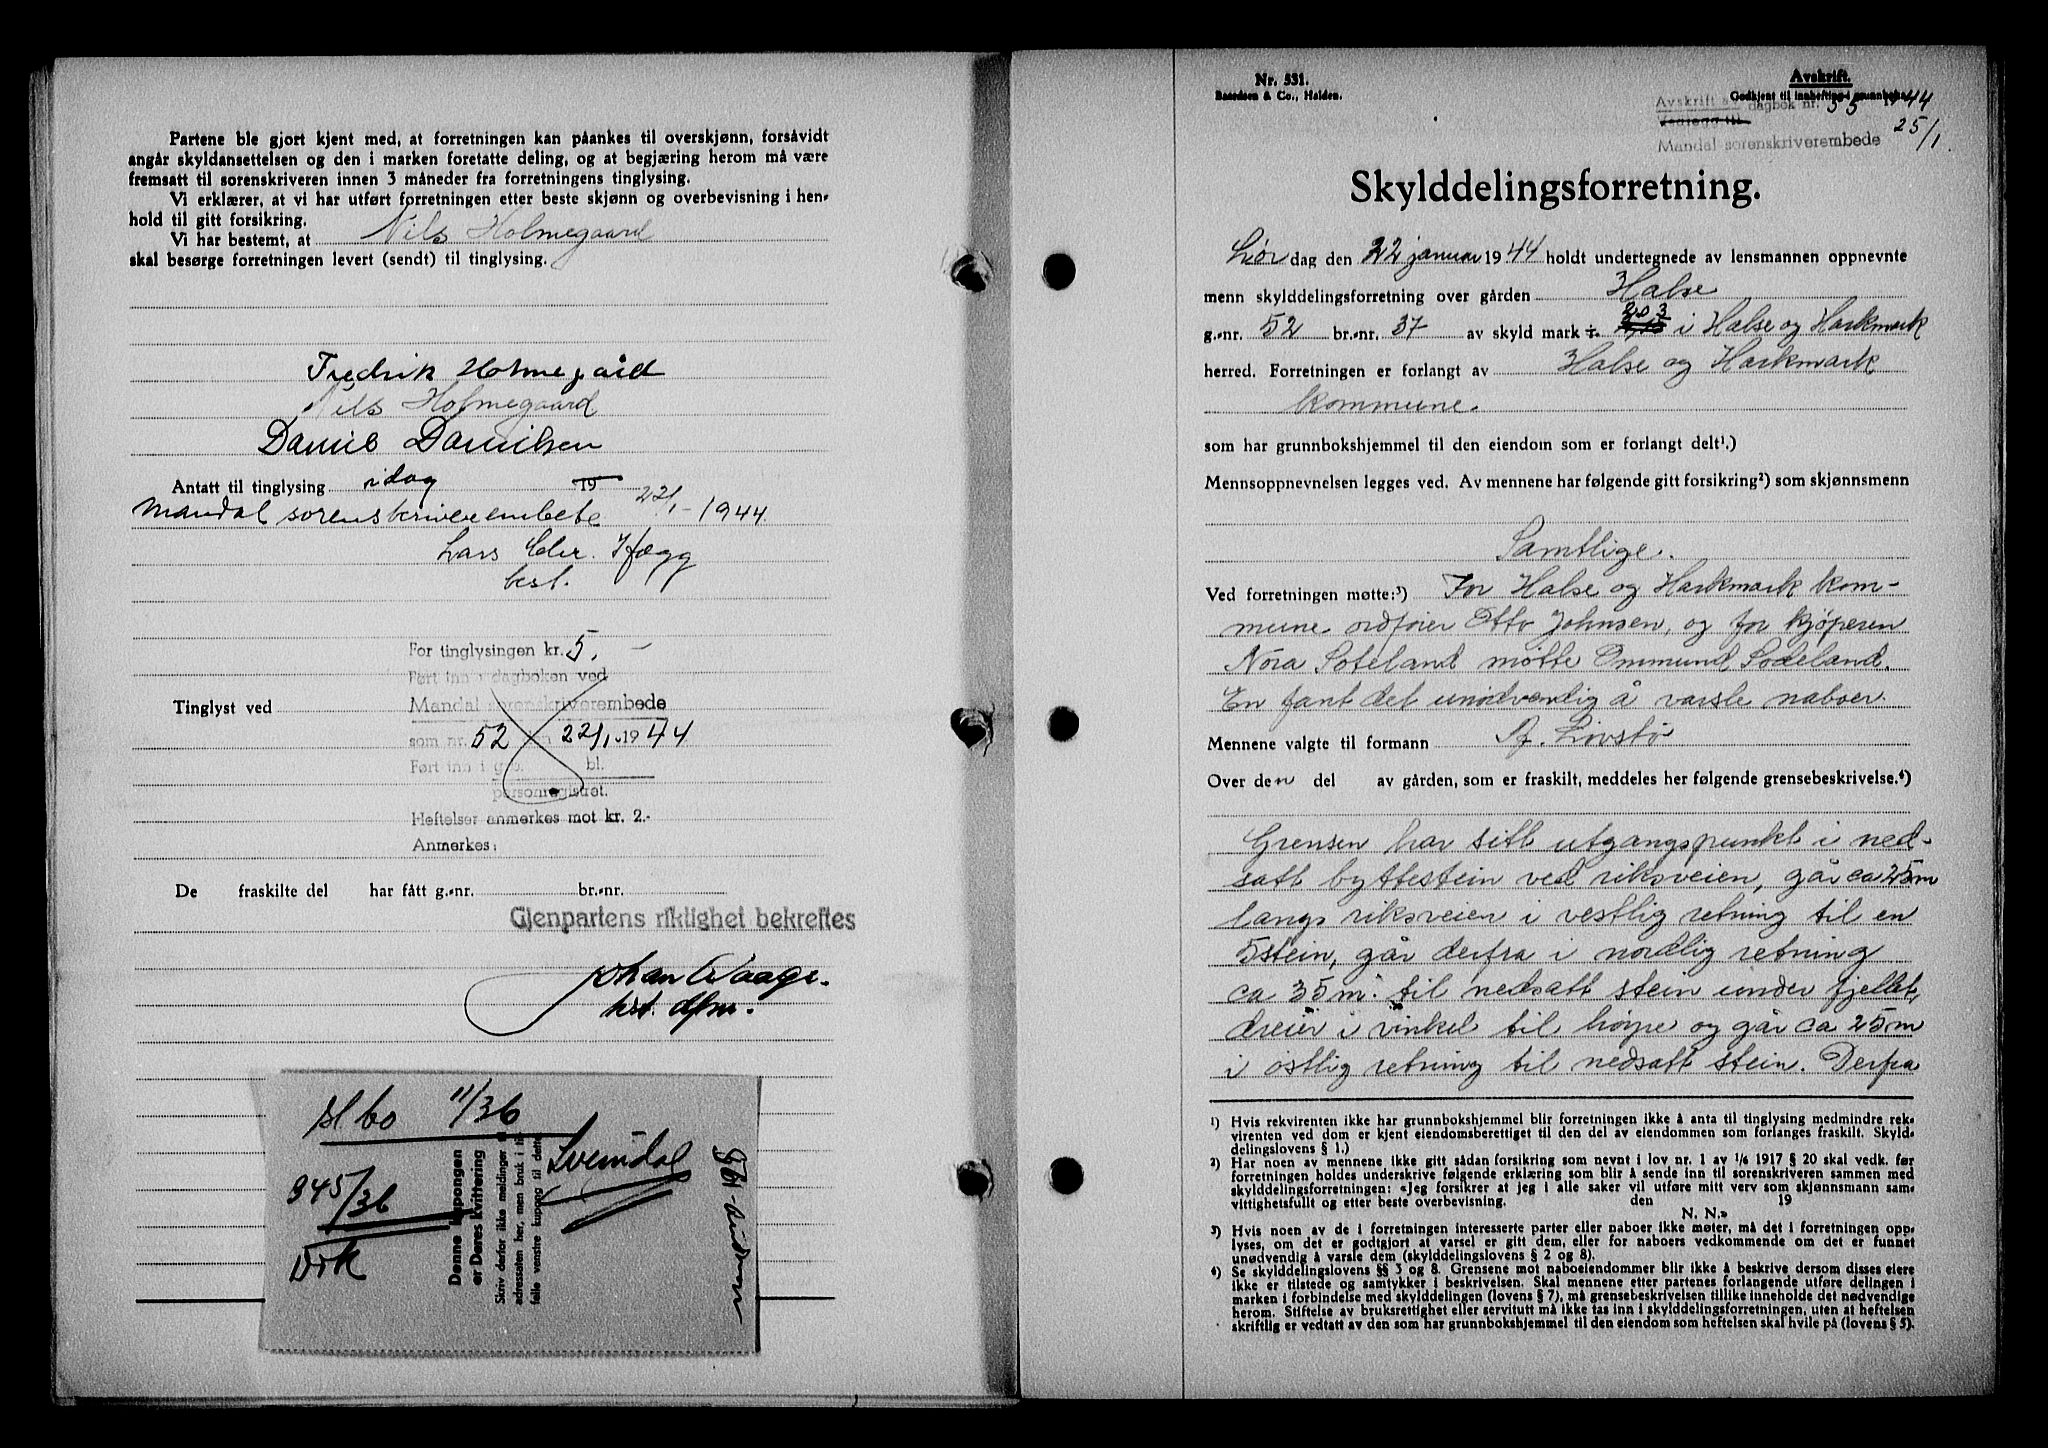 Partene ble gjort kjent med, at forretningen kan påankes til overskjønn, forsåvidt
angår skyldansettelsen og den i marken foretatte deling, og at begjæring herom må være
fremsatt til sorenskriveren innen 3 måneder fra forretningens tinglysing.
Vi erklærer, at vi har utført forretningen etter beste skjønn og overbevisning i hen-
hold til gitt forsikring.
Vi har bestemt, at Nils Holmegaard
skal besørge forretningen levert (sendt) til tinglysing.
Fredrik Holmegård
Nils Holmegaard
Daniel Danielsen
Antatt til tinglysing idag 19
Mandal sorenskriverembete 22/1-1944.
Lars Chr. Hægg
best.
For tinglysingen kr. 5,-
Ført inn i dagboken ved
Tinglyst ved Mandal sorenskriverembede
som nr. 52 den 22/1-1944
Ført inn i gr.b. bl.
personregistret.
Heftelser anmerkes mot kr. 2.-
Anmerkes:
De fraskilte del har fått g.-nr. br.-nr.
Gjenpartens riktighet bekreftes
Johan Waage.
kst. dfm.
11/36
945/36
Svendal
Denne kupongen
er Deres kvittering
Skriv derfor ikke meldinger til
adressaten her, men bruk i til-
felle venstre kupong til dette
Nr. 531.
Baardsen & Co., Halden.
Avskrift.
Godkjent til innhefting i grunnboka
Avskrift av dagbok nr. 55 1944
Vedlegg til 25/1.
Mandal sorenskriverembede
Skylddelingsforretning.
Lør dag den 22 januar 1944 holdt undertegnede av lensmannen oppnevnte
menn skylddelingsforretning over gården Halse
g.-nr. 52 br.-nr. 37 av skyld mark 2.03 i Halse og Harkmark
herred. Forretningen er forlangt av Halse og Harkmark
kommune.
som har grunnbokshjemmel til den eiendom som er forlangt delt¹.)
Mennsoppnevnelsen legges ved. Av mennene har følgende gitt forsikring²) som skjønnsmenn
Samtlige.
Ved forretningen møtte:³) For Halse og Harkmark kom-
mune ordfører Otto Johnsen, og for kjøperen
Nora Soteland møtte Ommund Sodeland.
En fant det unødvendig å varsle naboer.
Mennene valgte til formann A. Livstø
Over den del av gården, som er fraskilt, meddeles her følgende grensebeskrivelse.⁴)
Grensen har sitt utgangspunkt i ned-
satt byttestein ved riksveien, går ca 25 m
langs riksveien i vestlig retning til en
5stein, går derfra i nordlig retning
ca 35 m. til nedsatt stein under fjellet,
dreier i vinkel til høire og går ca 25 m
i østlig retning til nedsatt stein. Derfra
1) Hvis rekvirenten ikke har grunnbokshjemmel blir forretningen ikke å anta til tinglysing medmindre rek-
virenten ved dom er kjent eiendomsberettiget til den del av eiendommen som forlanges fraskilt. Skyld-
delingslovens § 1.)
2) Har noen av mennene ikke gitt sådan forsikring som nevnt i lov nr. 1 av 1/6 1917 § 20 skal vedk. før
forretningen holdes underskrive følgende erklæring som blir å sende inn til sorenskriveren sammen med
skylddelingsforretningen: «Jeg forsikrer at jeg i alle saker vil utføre mitt verv som skjønnsmann sam-
vittighetsfullt og etter beste overbevisning. den 19
N. N.»
3) Hvis noen av de i forretningen interesserte parter eller naboer ikke møter, må det i forretningen opp-
lyses, om det er godtgjort at varsel er gitt dem, eller for naboers vedkommende om det er funnet
unødvendig å varsle dem (skylddelingslovens § 2 og 8).
4) Se skylddelingslovens §§ 3 og 8. Grensene mot naboeiendommer blir ikke å beskrive dersom disses eiere
ikke er tilstede og samtykker i beskrivelsen. Skal mennene etter partenes forlangende utføre delingen i
marken i forbindelse med skylddelingen (lovens § 7), må grensebeskrivelsen tillike inneholde det nødvendige
herom. Stiftelse av bruksrettighet eller servitutt må ikke tas inn i skylddelingsforretningen, uten at heftelsen
skriftlig er vedtatt av den som har grunnbokshjemmel til den eiendom som heftelsen skal hvile på (lovens § 5).